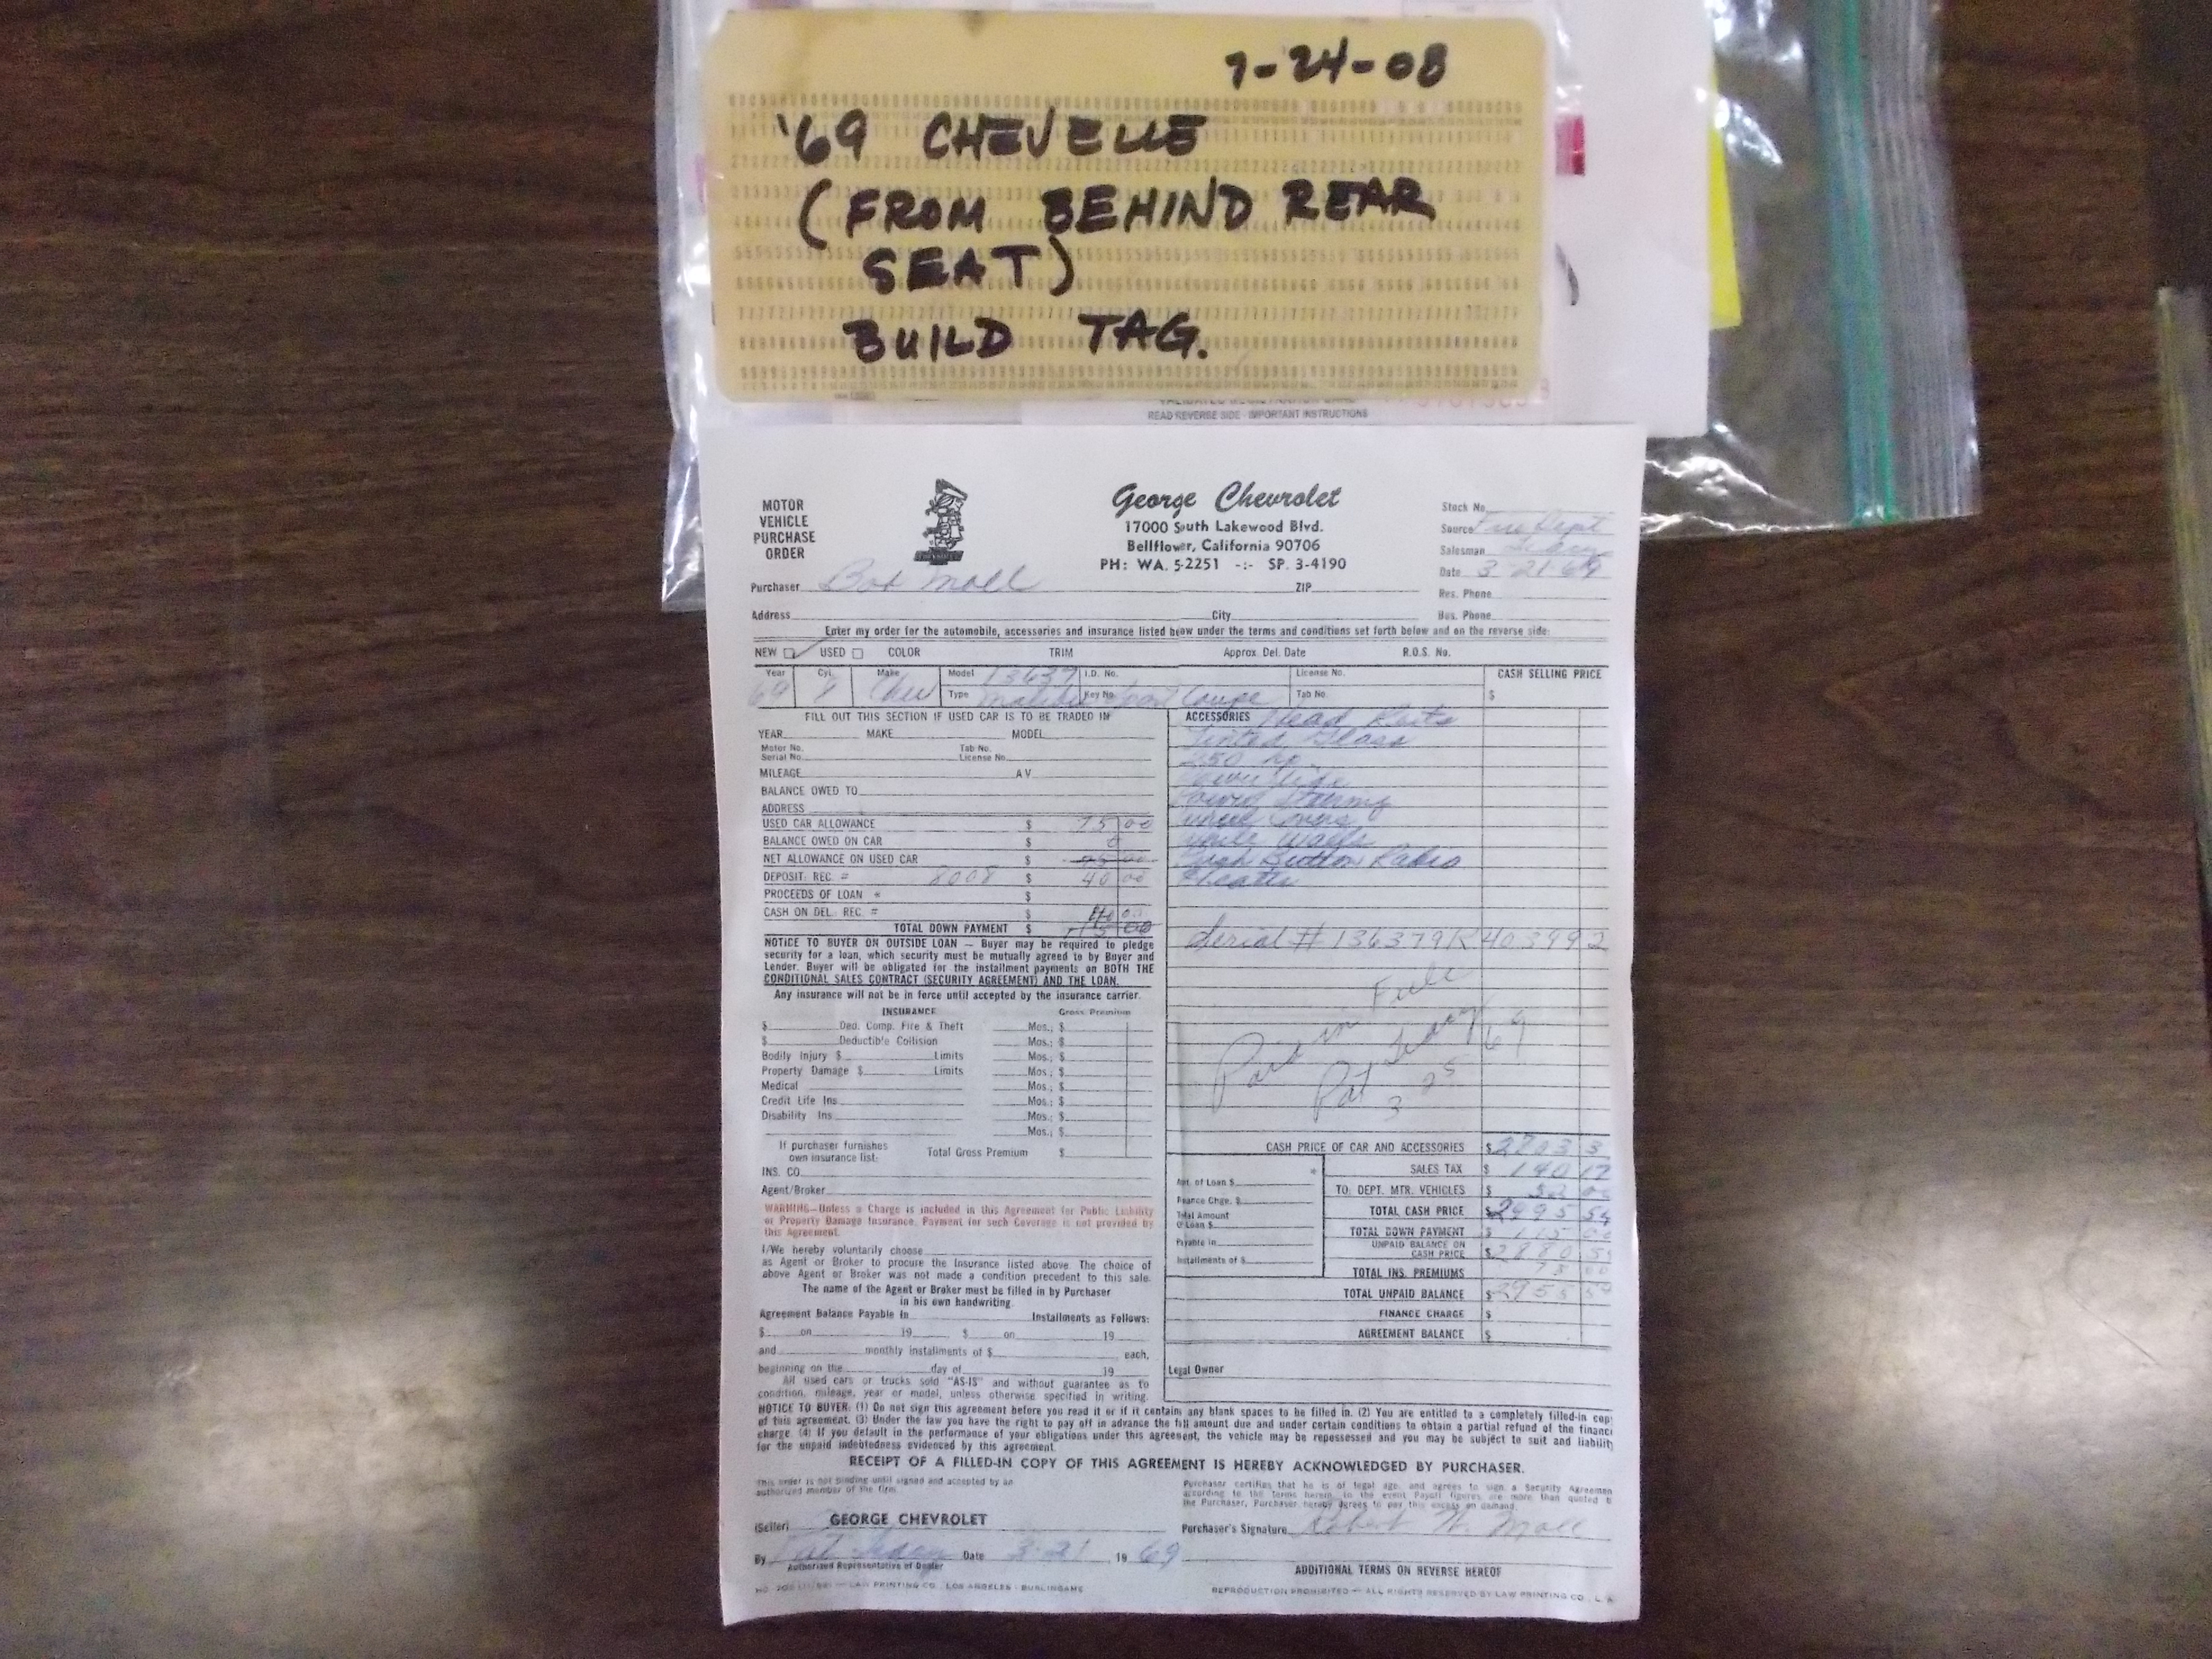 7-24-08
'69 CHEVELLE
(FROM BEHIND REAR
SEAT)
BUILD TAG.
READ REVERSE SIDE - IMPORTANT INSTRUCTIONS
MOTOR
VEHICLE
PURCHASE
ORDER
George Chevrolet
17000 South Lakewood Blvd.
Bellflower, California 90706
PH: WA. 5-2251 -:- SP. 3-4190
Stock No.
Source Fire Dept
Salesman
Date 3-21-69
Res. Phone
Bus. Phone
Purchaser Bob Moll ZIP
Address City
Enter my order for the automobile, accessories and insurance listed below under the terms and conditions set forth below and on the reverse side:
NEW USED COLOR TRIM Approx. Del. Date R.O.S. No.
Year Cyl. Make Model 13637 I.D. No. License No. CASH SELLING PRICE
69 8 Chev Type Malibu Sport Coupe Key No. Tab No. $
FILL OUT THIS SECTION IF USED CAR IS TO BE TRADED IN
YEAR MAKE MODEL
Motor No. Tab No.
Serial No. License No.
MILEAGE AV
BALANCE OWED TO
ADDRESS
USED CAR ALLOWANCE $ 75 00
BALANCE OWED ON CAR $ 0
NET ALLOWANCE ON USED CAR $
DEPOSIT: REC. = 8008 $ 40 00
PROCEEDS OF LOAN * $
CASH ON DEL. REC. = $
TOTAL DOWN PAYMENT $
NOTICE TO BUYER ON OUTSIDE LOAN — Buyer may be required to pledge
security for a loan, which security must be mutually agreed to by Buyer and
Lender. Buyer will be obligated for the installment payments on BOTH THE
CONDITIONAL SALES CONTRACT (SECURITY AGREEMENT) AND THE LOAN.
Any insurance will not be in force until accepted by the insurance carrier.
INSURANCE Gross Premium
$ Ded. Comp. Fire & Theft Mos.; $
$ Deductible Collision Mos.; $
Bodily Injury $ Limits Mos.; $
Property Damage $ Limits Mos.; $
Medical Mos.; $
Credit Life Ins. Mos.; $
Disability Ins. Mos.; $
Mos.; $
If purchaser furnishes
own insurance list: Total Gross Premium $
INS. CO.
Agent/Broker
WARNING—Unless a Charge is included in this Agreement for Public Liability
or Property Damage Insurance, Payment for such Coverage is not provided by
this Agreement.
I/We hereby voluntarily choose
as Agent or Broker to procure the Insurance listed above. The choice of
above Agent or Broker was not made a condition precedent to this sale.
The name of the Agent or Broker must be filled in by Purchaser
in his own handwriting.
Agreement Balance Payable In Installments as Follows:
$ on 19 $ on 19
and monthly installments of $ each,
beginning on the day of 19
All used cars or trucks sold "AS-IS" and without guarantee as to
condition, mileage, year or model, unless otherwise specified in writing.
ACCESSORIES Head Rests
Tinted Glass
250 hp
Power Glide
Power Steering
Wheel Covers
White Walls
Push Button Radio
Heater
Serial # 136379K403992
Paid in Full
Pat
3 25 69
CASH PRICE OF CAR AND ACCESSORIES $
SALES TAX $ 140 17
TO: DEPT. MTR. VEHICLES $
TOTAL CASH PRICE $ 2995 54
TOTAL DOWN PAYMENT $ 115 00
UNPAID BALANCE ON
CASH PRICE $ 2880 54
TOTAL INS. PREMIUMS 75 00
TOTAL UNPAID BALANCE $ 2955 54
FINANCE CHARGE $
AGREEMENT BALANCE $
Amt. of Loan $
Finance Chge. $
Total Amount
O Loan $
Payable in
Installments of $
Legal Owner
NOTICE TO BUYER: (1) Do not sign this agreement before you read it or if it contains any blank spaces to be filled in. (2) You are entitled to a completely filled-in cop
of this agreement. (3) Under the law you have the right to pay off in advance the full amount due and under certain conditions to obtain a partial refund of the financ
charge. (4) If you default in the performance of your obligations under this agreement, the vehicle may be repossessed and you may be subject to suit and liability
for the unpaid indebtedness evidenced by this agreement.
RECEIPT OF A FILLED-IN COPY OF THIS AGREEMENT IS HEREBY ACKNOWLEDGED BY PURCHASER.
This order is not binding until signed and accepted by an
authorized member of the firm.
Purchaser certifies that he is of legal age, and agrees to sign a Security Agreemen
according to the terms herein. In the event Payoff figures are more than quoted b
the Purchaser, Purchaser hereby agrees to pay this excess on demand.
(Seller) GEORGE CHEVROLET
Purchaser's Signature Robert W. Moll
By Date 3-21 19 69
Authorized Representative of Dealer
ADDITIONAL TERMS ON REVERSE HEREOF
LAW PRINTING CO., LOS ANGELES - BURLINGAME
REPRODUCTION PROHIBITED — ALL RIGHTS RESERVED BY LAW PRINTING CO., L. A